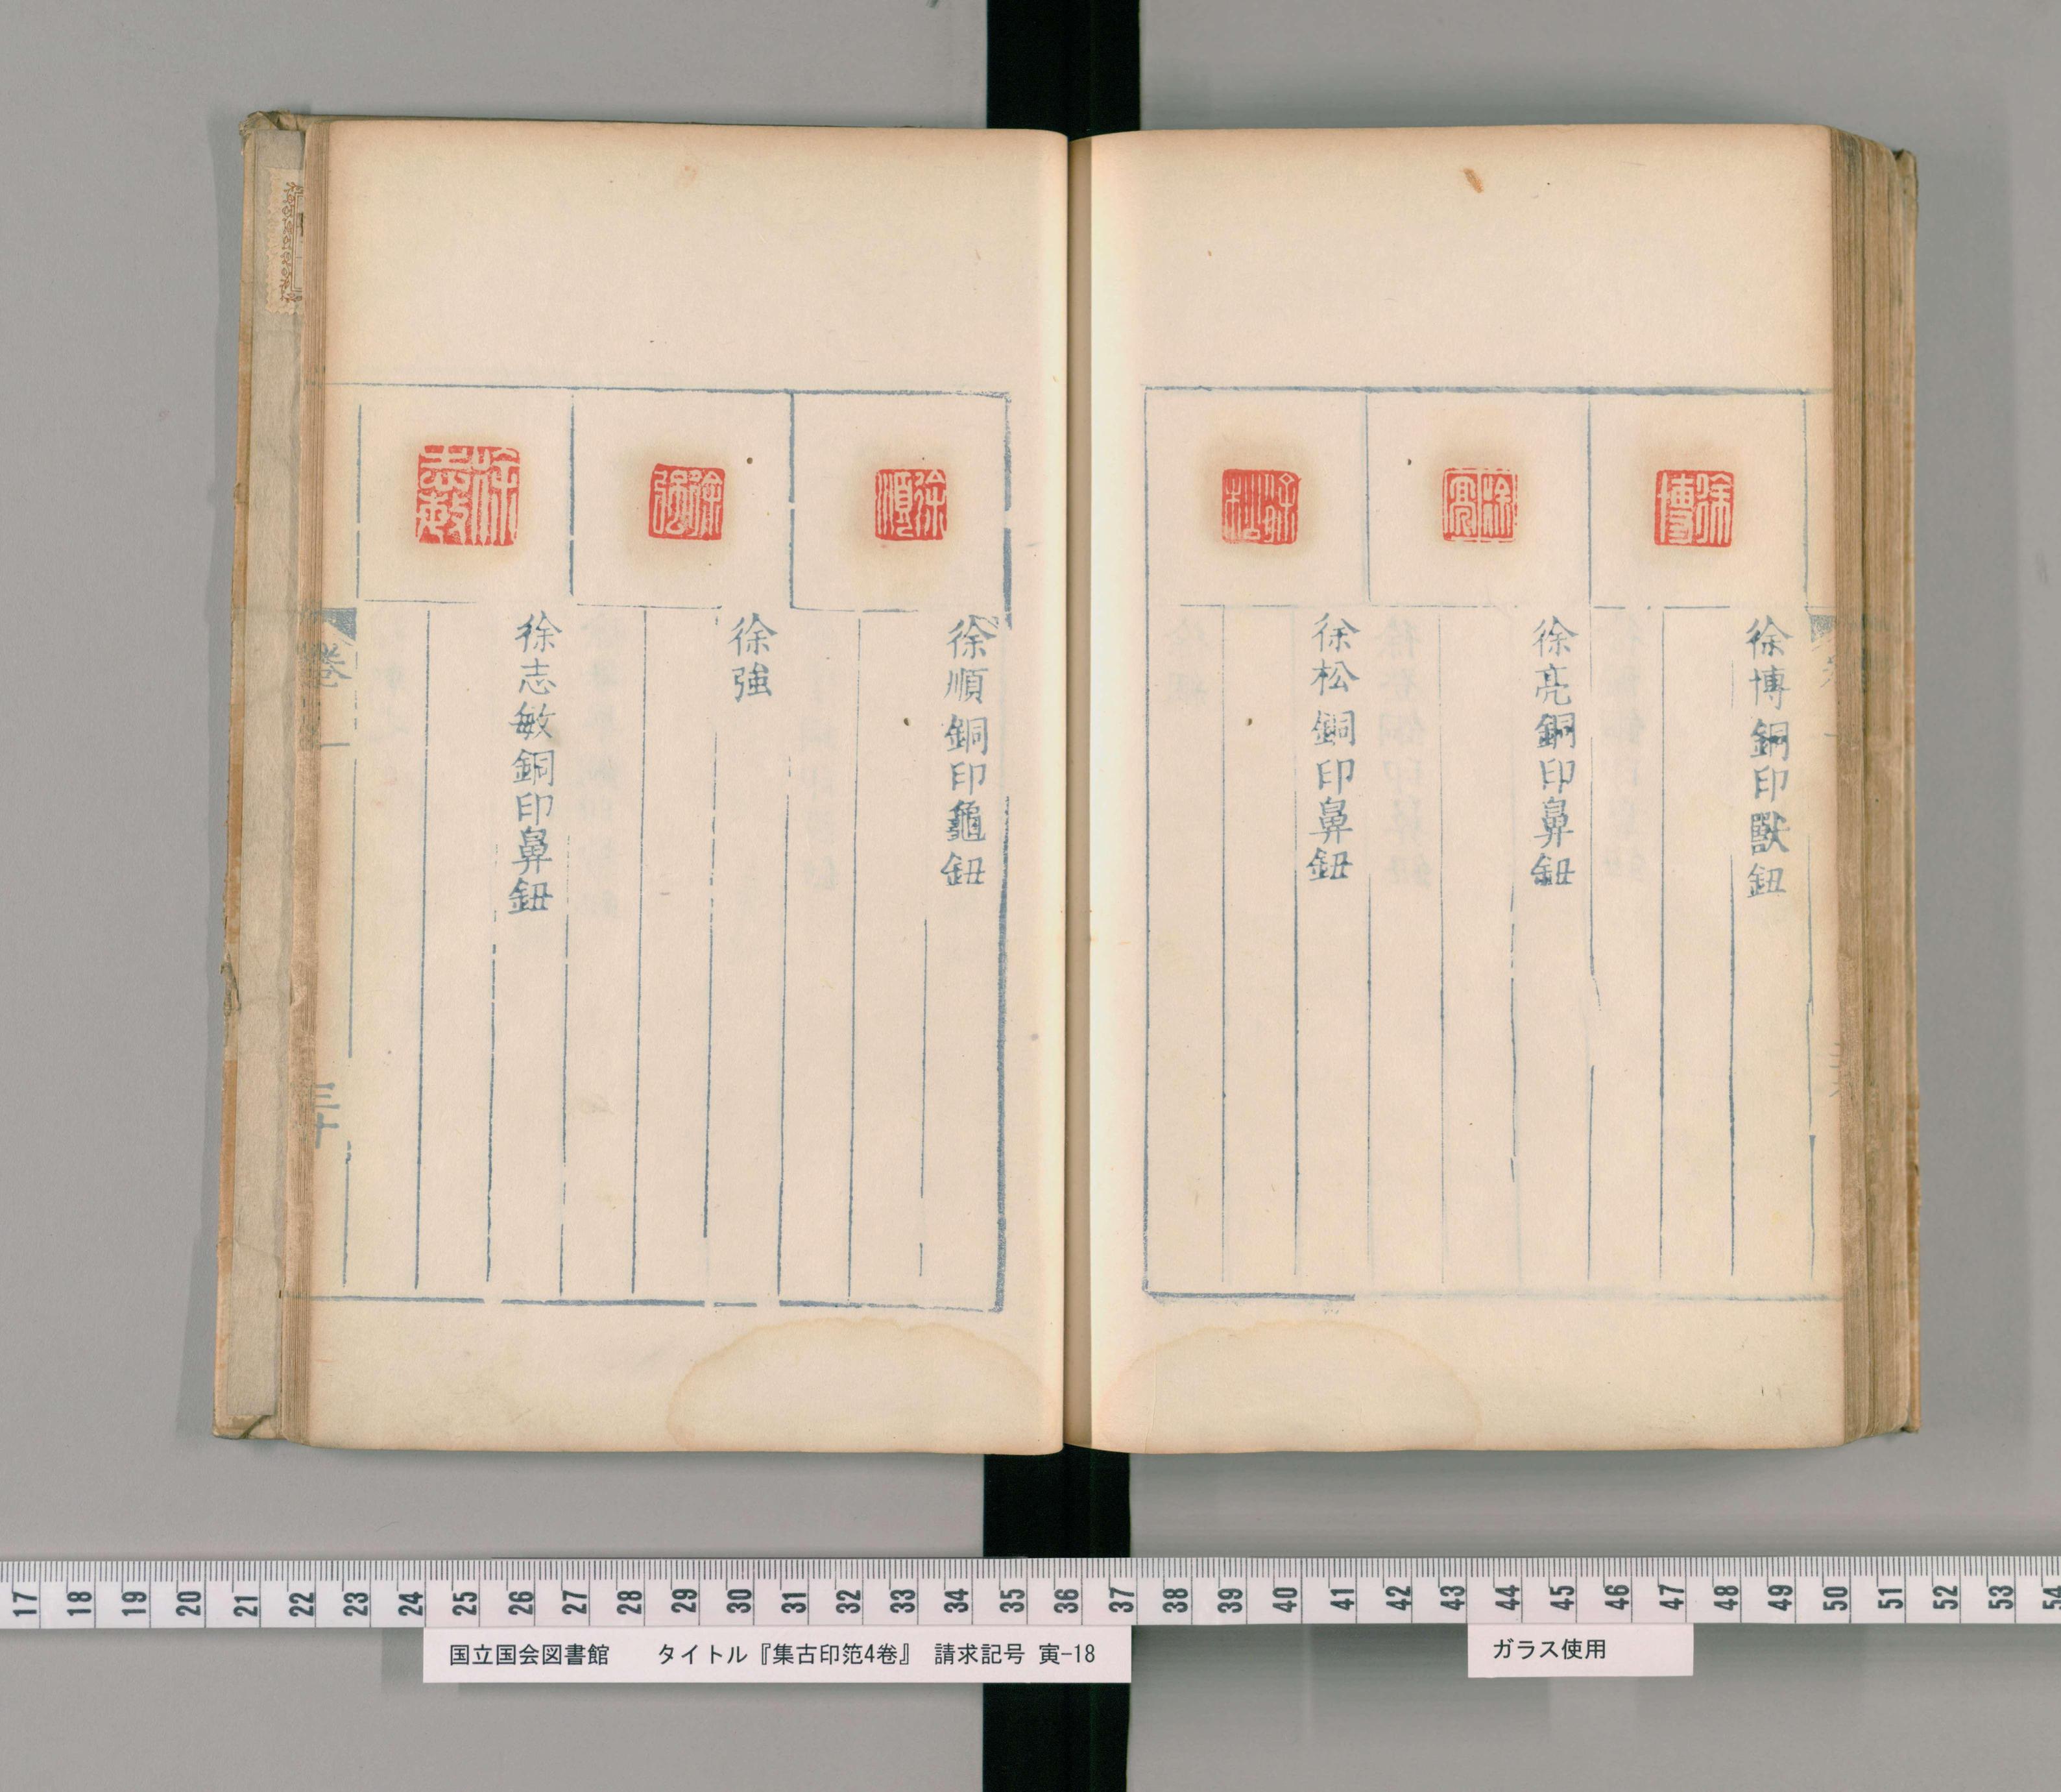 徐博銅印獸鈕
徐亮銅印鼻鈕
徐松銅印鼻鈕
徐順銅印龜鈕
徐強
徐志敏銅印鼻鈕
卷一
三十
徐博
徐亮
徐松
徐順
徐強
徐志敏
17 18 19 20 21 22 23 24 25 26 27 28 29 30 31 32 33 34 35 36 37 38 39 40 41 42 43 44 45 46 47 48 49 50 51 52 53 54
国立国会図書館 タイトル『集古印笵4巻』 請求記号 寅-18
ガラス使用